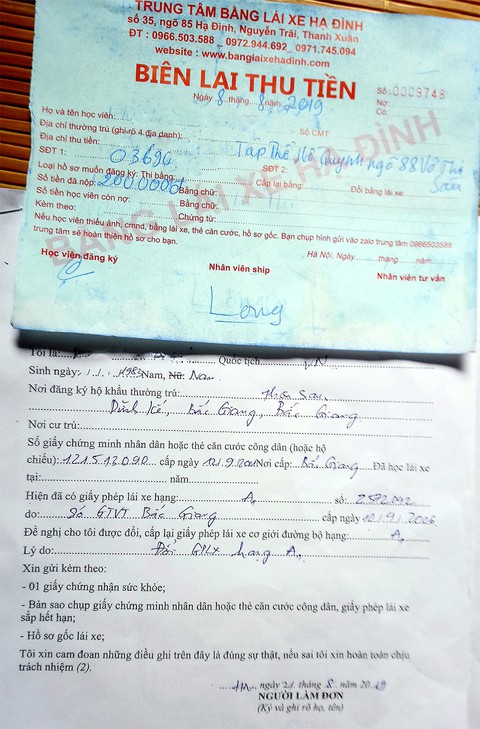 TRUNG TÂM BẰNG LÁI XE HẠ ĐÌNH
số 35, ngõ 85 Hạ Đình, Nguyễn Trãi, Thanh Xuân
ĐT : 0966.503.588 _ 0972.944.692_ 0971.745.094
website : www.banglaixehadinh.com
BIÊN LAI THU TIỀN
Số: 0009748
Nợ:
Có:
Ngày 8 tháng 8 năm 2019
Họ và tên học viên: Số CMT
Địa chỉ thường trú (ghi rõ 4 địa danh):
Địa chỉ thu tiền: Tập Thể Hồ Quỳnh ngõ 88 Võ Thị Sáu
SĐT 1: 03696 SĐT 2:
Loại hồ sơ muốn đăng ký: Thi bằng: Cấp lại bằng: Đổi bằng lái xe:
Số tiền đã nộp: Bằng chữ:
Số tiền học viên còn nợ: Bằng chữ:
Kèm theo: Chứng từ:
Nếu học viên thiếu ảnh, cmnd, bằng lái xe, thẻ căn cước, hồ sơ gốc. Bạn chụp hình gửi vào zalo trung tâm 0966503588
trung tâm sẽ hoàn thiện hồ sơ cho bạn.
, Hà Nội, Ngày tháng năm
Học viên đăng ký Nhân viên ship Nhân viên tư vấn
Long
BẰNG LÁI XE HẠ ĐÌNH
Tôi là: Quốc tịch: VN
Sinh ngày: 1983 Nam, Nữ: Nam
Nơi đăng ký hộ khẩu thường trú:
Dĩnh Kế, Bắc Giang, Bắc Giang
Nơi cư trú:
Số giấy chứng minh nhân dân hoặc thẻ căn cước công dân (hoặc hộ
chiếu): cấp ngày Nơi cấp: Bắc Giang Đã học lái xe
tại: năm
Hiện đã có giấy phép lái xe hạng: A1 số:
do: Sở GTVT Bắc Giang cấp ngày
Đề nghị cho tôi được đổi, cấp lại giấy phép lái xe cơ giới đường bộ hạng: A1
Lý do: Đổi GPLX hạng A1
Xin gửi kèm theo:
- 01 giấy chứng nhận sức khỏe;
- Bản sao chụp giấy chứng minh nhân dân hoặc thẻ căn cước công dân, giấy phép lái xe
sắp hết hạn;
- Hồ sơ gốc lái xe;
Tôi xin cam đoan những điều ghi trên đây là đúng sự thật, nếu sai tôi xin hoàn toàn chịu
trách nhiệm (2).
HN, ngày 21 tháng 8 năm 2019
NGƯỜI LÀM ĐƠN
(Ký và ghi rõ họ, tên)